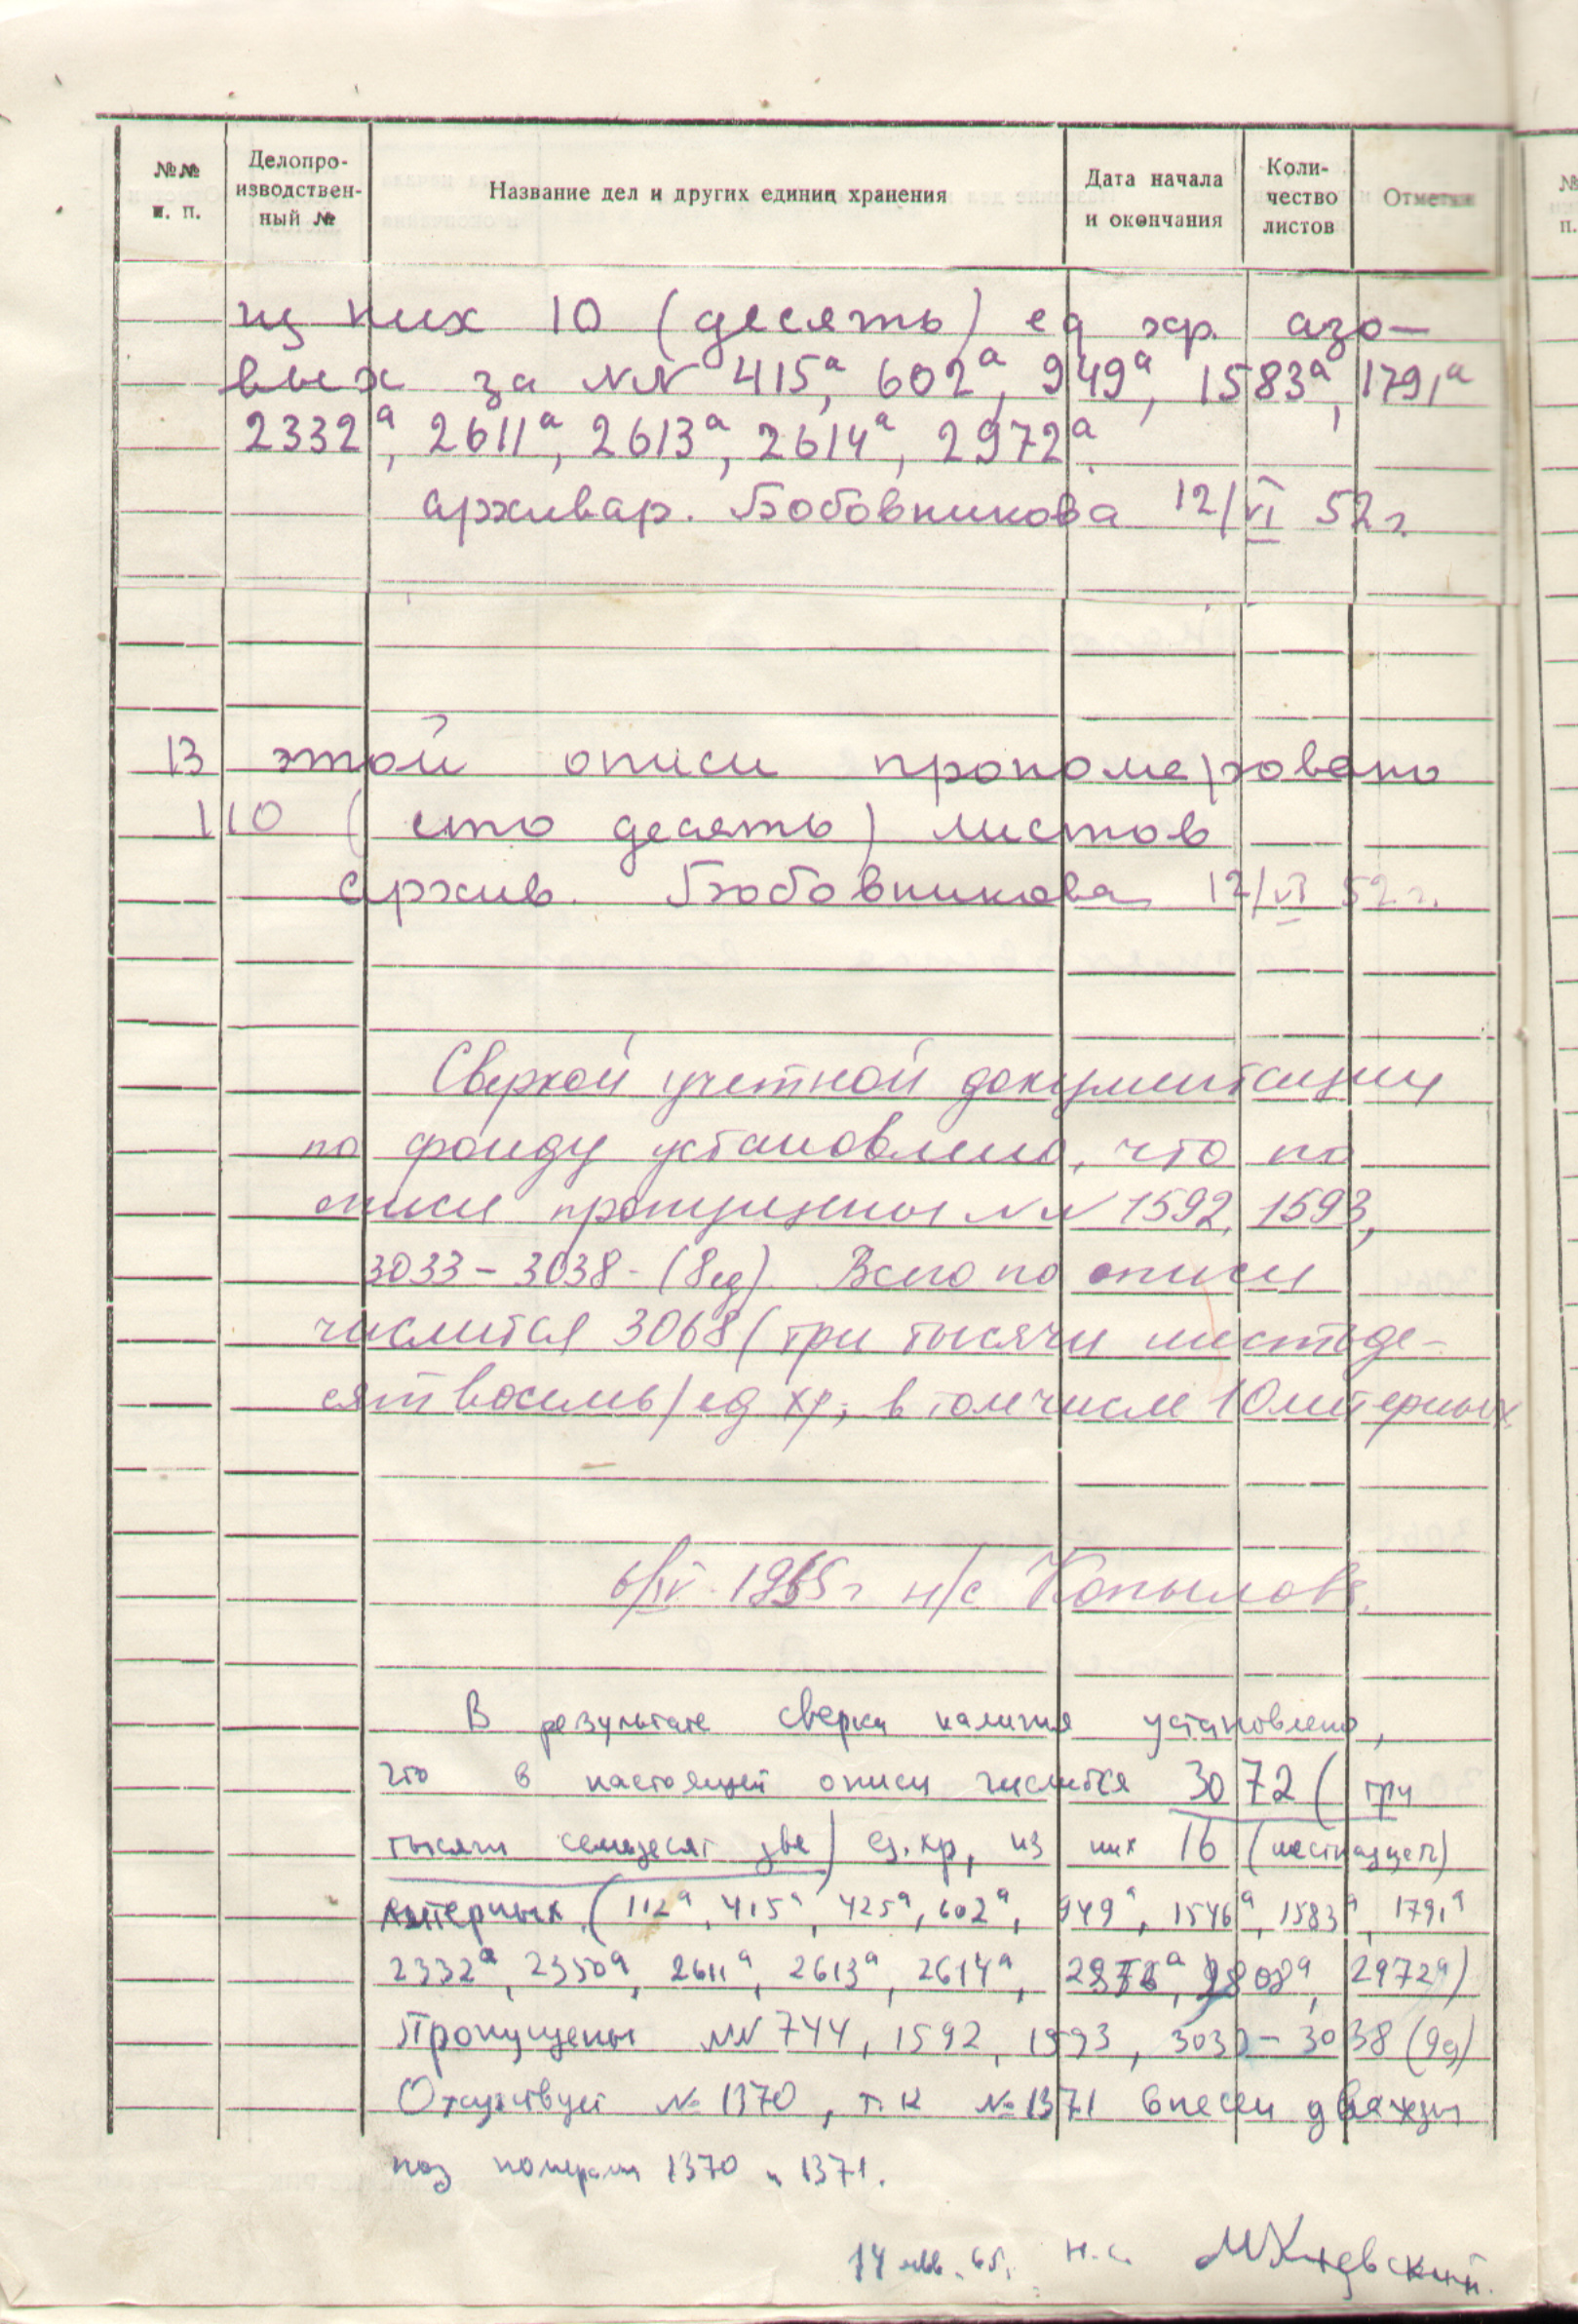 №№ п. п.
Делопро-
изводствен-
ный №
Название дел и других единиц хранения
Дата начала
и окончания
Коли-
чество
листов
Отметки
№
п.
из них 10 (десять) ед хр. азо-
вых за NN 415а, 602а, 949а, 1583а, 1791а
2332а, 2611а, 2613а, 2614а, 2972а.
архивар. Бобовникова 12/VI 52 г.
В этой описи прономеровано
110 (сто десять) листов
архив. Бобовникова 12/VI 52 г.
Сверкой учетной документации
по фонду установлено, что по
описи пропущены NN 1592, 1593,
3033 – 3038 - (8 ед). Всего по описи
числится 3068 (три тысячи шестьде-
сят восемь) ед хр, в том числе 10 литерных
6/IV - 1965 г н/с Копылова.
В результате сверки наличия установлено,
что в настоящей описи числится 3072 (три
тысячи семьдесят две) ед. хр, из них 16 (шестнадцать)
литерных (112а, 415а, 425а, 602а, 949а, 1546а, 1583а, 1791а
2332а, 2350а, 2611а, 2613а, 2614а, 2808а, 2972а)
Пропущены NN 744, 1592, 1593, 3033 – 3038 (9 ед)
Отсутствует № 1370, т. к № 1371 внесен дважды
под номерами 1370 и 1371.
14 65. н. с.